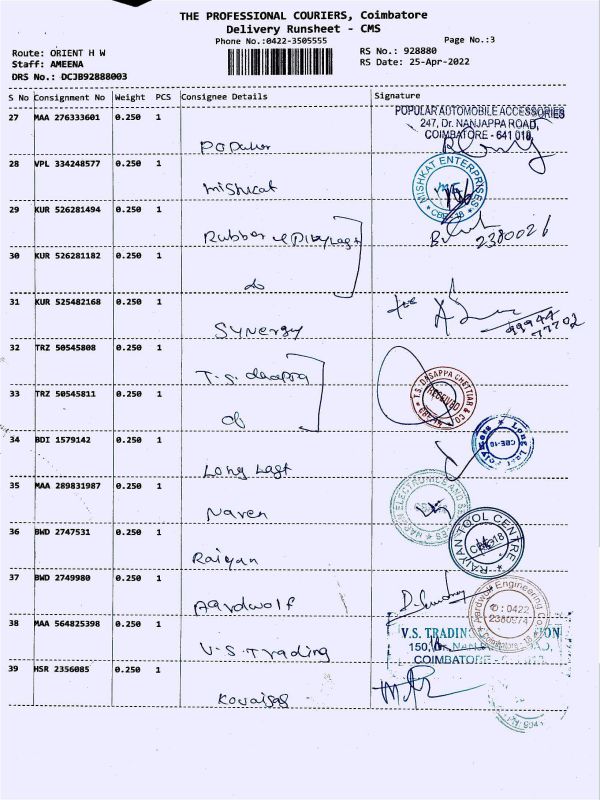 THE PROFESSIONAL COURIERS, Coimbatore
Delivery Runsheet - CMS
Phone No.:0422-3505555
Page No.:3
Route: ORIENT H W
RS No.: 928880
Staff: AMEENA
RS Date: 25-Apr-2022
DRS No.: DCJB92888003
S No Consignment No Weight PCS Consignee Details Signature
27 MAA 276333601 0.250 1
POPULAR AUTOMOBILE ACCESSORIES
247, Dr. NANJAPPA ROAD,
COIMBATORE - 641 018,
Popular
28 VPL 334248577 0.250 1
Mishkat
MISHKAT ENTERPRISES
CBE-18
29 KUR 526281494 0.250 1
Rubber
2380026
30 KUR 526281182 0.250 1
do
31 KUR 525482168 0.250 1
Synergy
99944
77702
32 TRZ 50545808 0.250 1
T.S.
T.S. DASAPPA CHETTIAR & CO
RECEIVED
33 TRZ 50545811 0.250 1
do
34 BDI 1579142 0.250 1
Long Last
CBE-18
35 MAA 289831987 0.250 1
Naren
NAREN ELECTRONICS AND
36 BWD 2747531 0.250 1
Raiyan
RAIYAN TOOL CENTRE
37 BWD 2749980 0.250 1
Aardwolf
Aardwolf Engineering Co
: 0422
2380974
Coimbatore - 18
38 MAA 564825398 0.250 1
V.S. Trading
V.S. TRADING
150, Dr.
COIMBATORE -
39 HSR 2356085 0.250 1